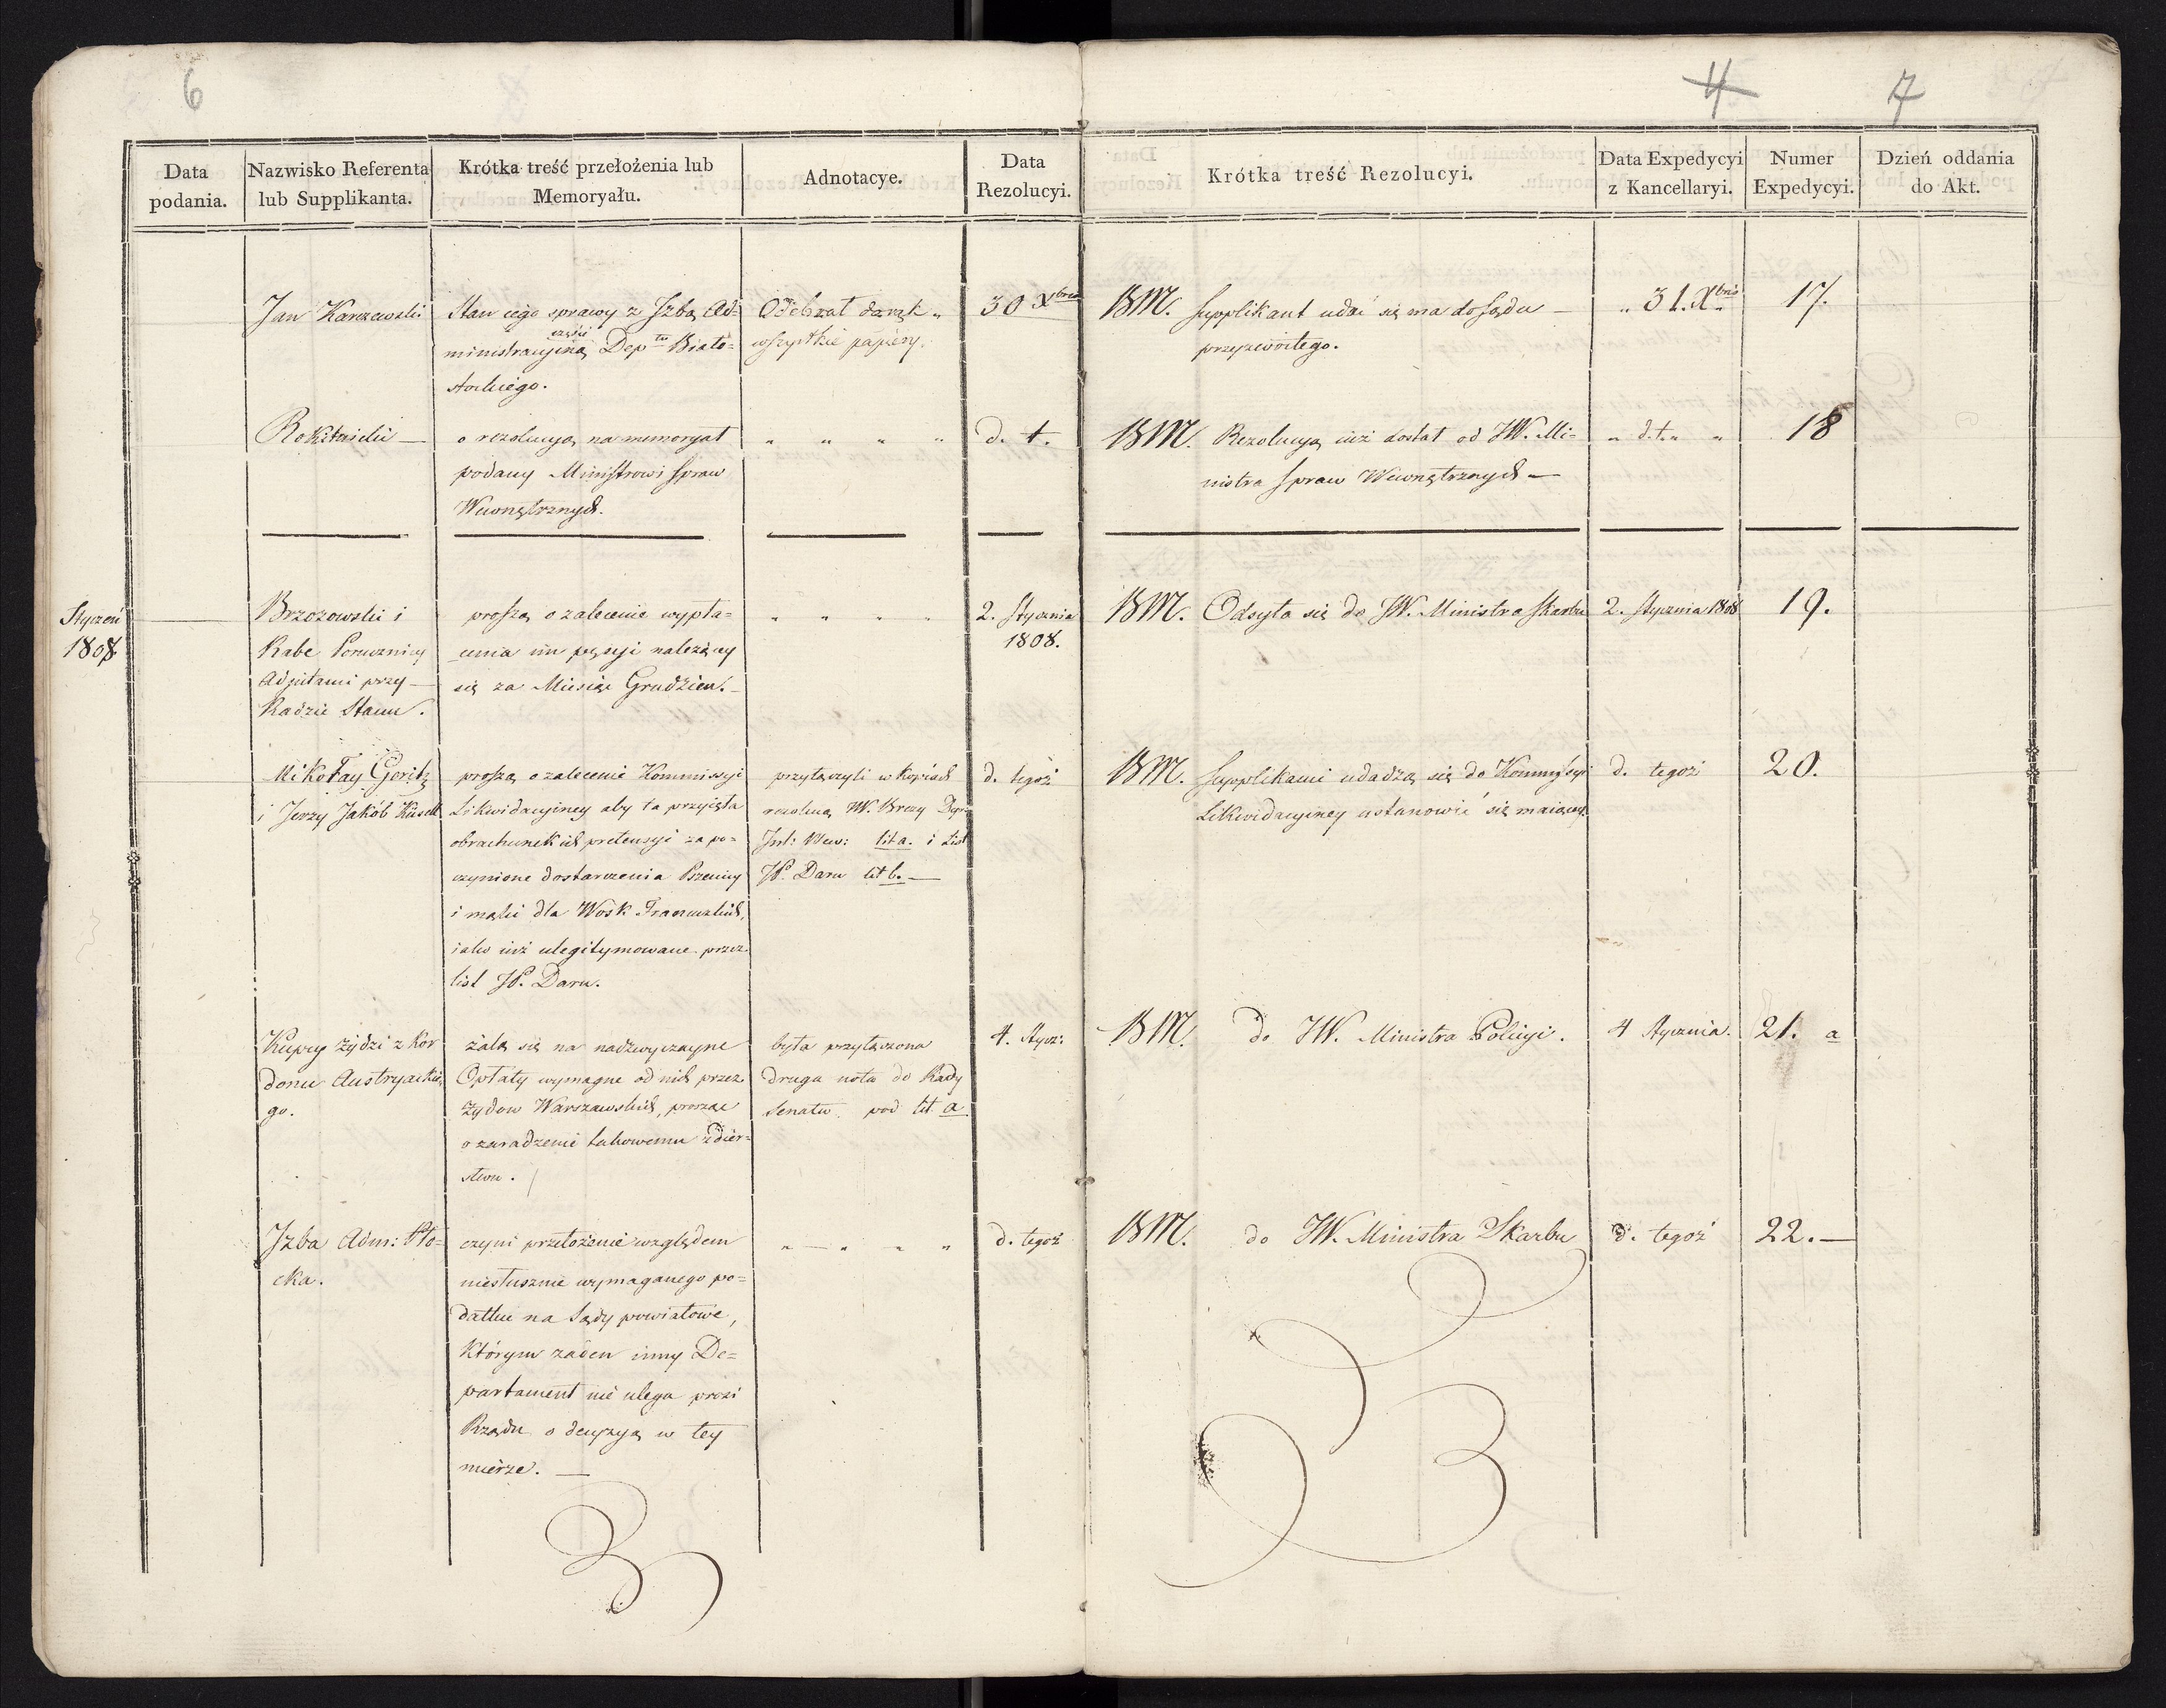 6
4
7
Data podania.
Nazwisko Referenta lub Supplikanta.
Krótka treść przełożenia lub Memoryału.
Adnotacye.
Data Rezolucyi.
Krótka treść Rezolucyi.
Data Expedycyi z Kancellaryi.
Numer Expedycyi.
Dzień oddania do Akt.
Jan Karczewski
Stan iego sprawy z Jzbą Ad=
części
ministracyiną Dep tu Biało=
stockiego.
Odebrał
wszystkie papiery.
30 Xbris
BM. Supplikant udać się ma do Sądu
przyzwoitego.
„ 31. Xbris
17.
Rokitnicki —
o rezolucyą na memoryał
podany Ministrowi Spraw
Wewnętrznych.
„ „ „ „
d. t.
BM. Rezolucyą iuż dostał od JW. Mi=
nistra Spraw Wewnętrznych —
„ d. t. „ „
18
Styczeń
1808
Brzozowski i
Rabe Porucznicy
Adjutanci przy
Radzie Stanu.
proszą o zalecenie wypła=
cenia im pensyi należący
się za Miesiąc Grudzień. —
„ „ „ „
2. Stycznia
1808.
BM. Odsyła się do JW. Ministra Skarbu
2. Stycznia 1808
19.
Mikołay Goritz
i Jerzy Jakób Küsell
proszą o zalecenie Kommissyi
Likwidacyiney aby ta przyięła
obrachunek ich pretensyi za po=
czynione dostarczenia Pszenicy
i mąki dla Wosk. Francuzkich,
iako iuż ulegitymowane przez
list JP. Daru.
przyłączyli w kopiach
rezolucą W. Brezy Dyr:
Jnt: Wew: lit a. i List
JP. Daru lit b. —
d. tegoż
BM. Supplikanci udadzą się do Kommissyi
Likwidacyiney ustanowić się maiącey.
d. tegoż
20.
Kupcy żydzi z Kor
donu Austryackie
go.
żalą się na nadzwyczayne
Opłaty wymagne od nich przez
Żydow Warszawskich, prosząc
o zaradzenie takowemu zdier=
stwu.
była przyłączona
druga nota do Rady
Senatu pod lit. a
4. Stycz:
BM. do JW. Ministra Policyi.
4 Stycznia.
21. a
Jzba Adm: Pło=
cka.
czyni przełożenie względem
niesłusznie wymaganego po=
datku na Sądy powiatowe,
którym żaden inny De=
partament nie ulega prosi
Rządu o decyzyą w tey
mierze. —
„ — „ „ „
d. tegoż
BM. do JW. Ministra Skarbu
d. tegoż
22. —